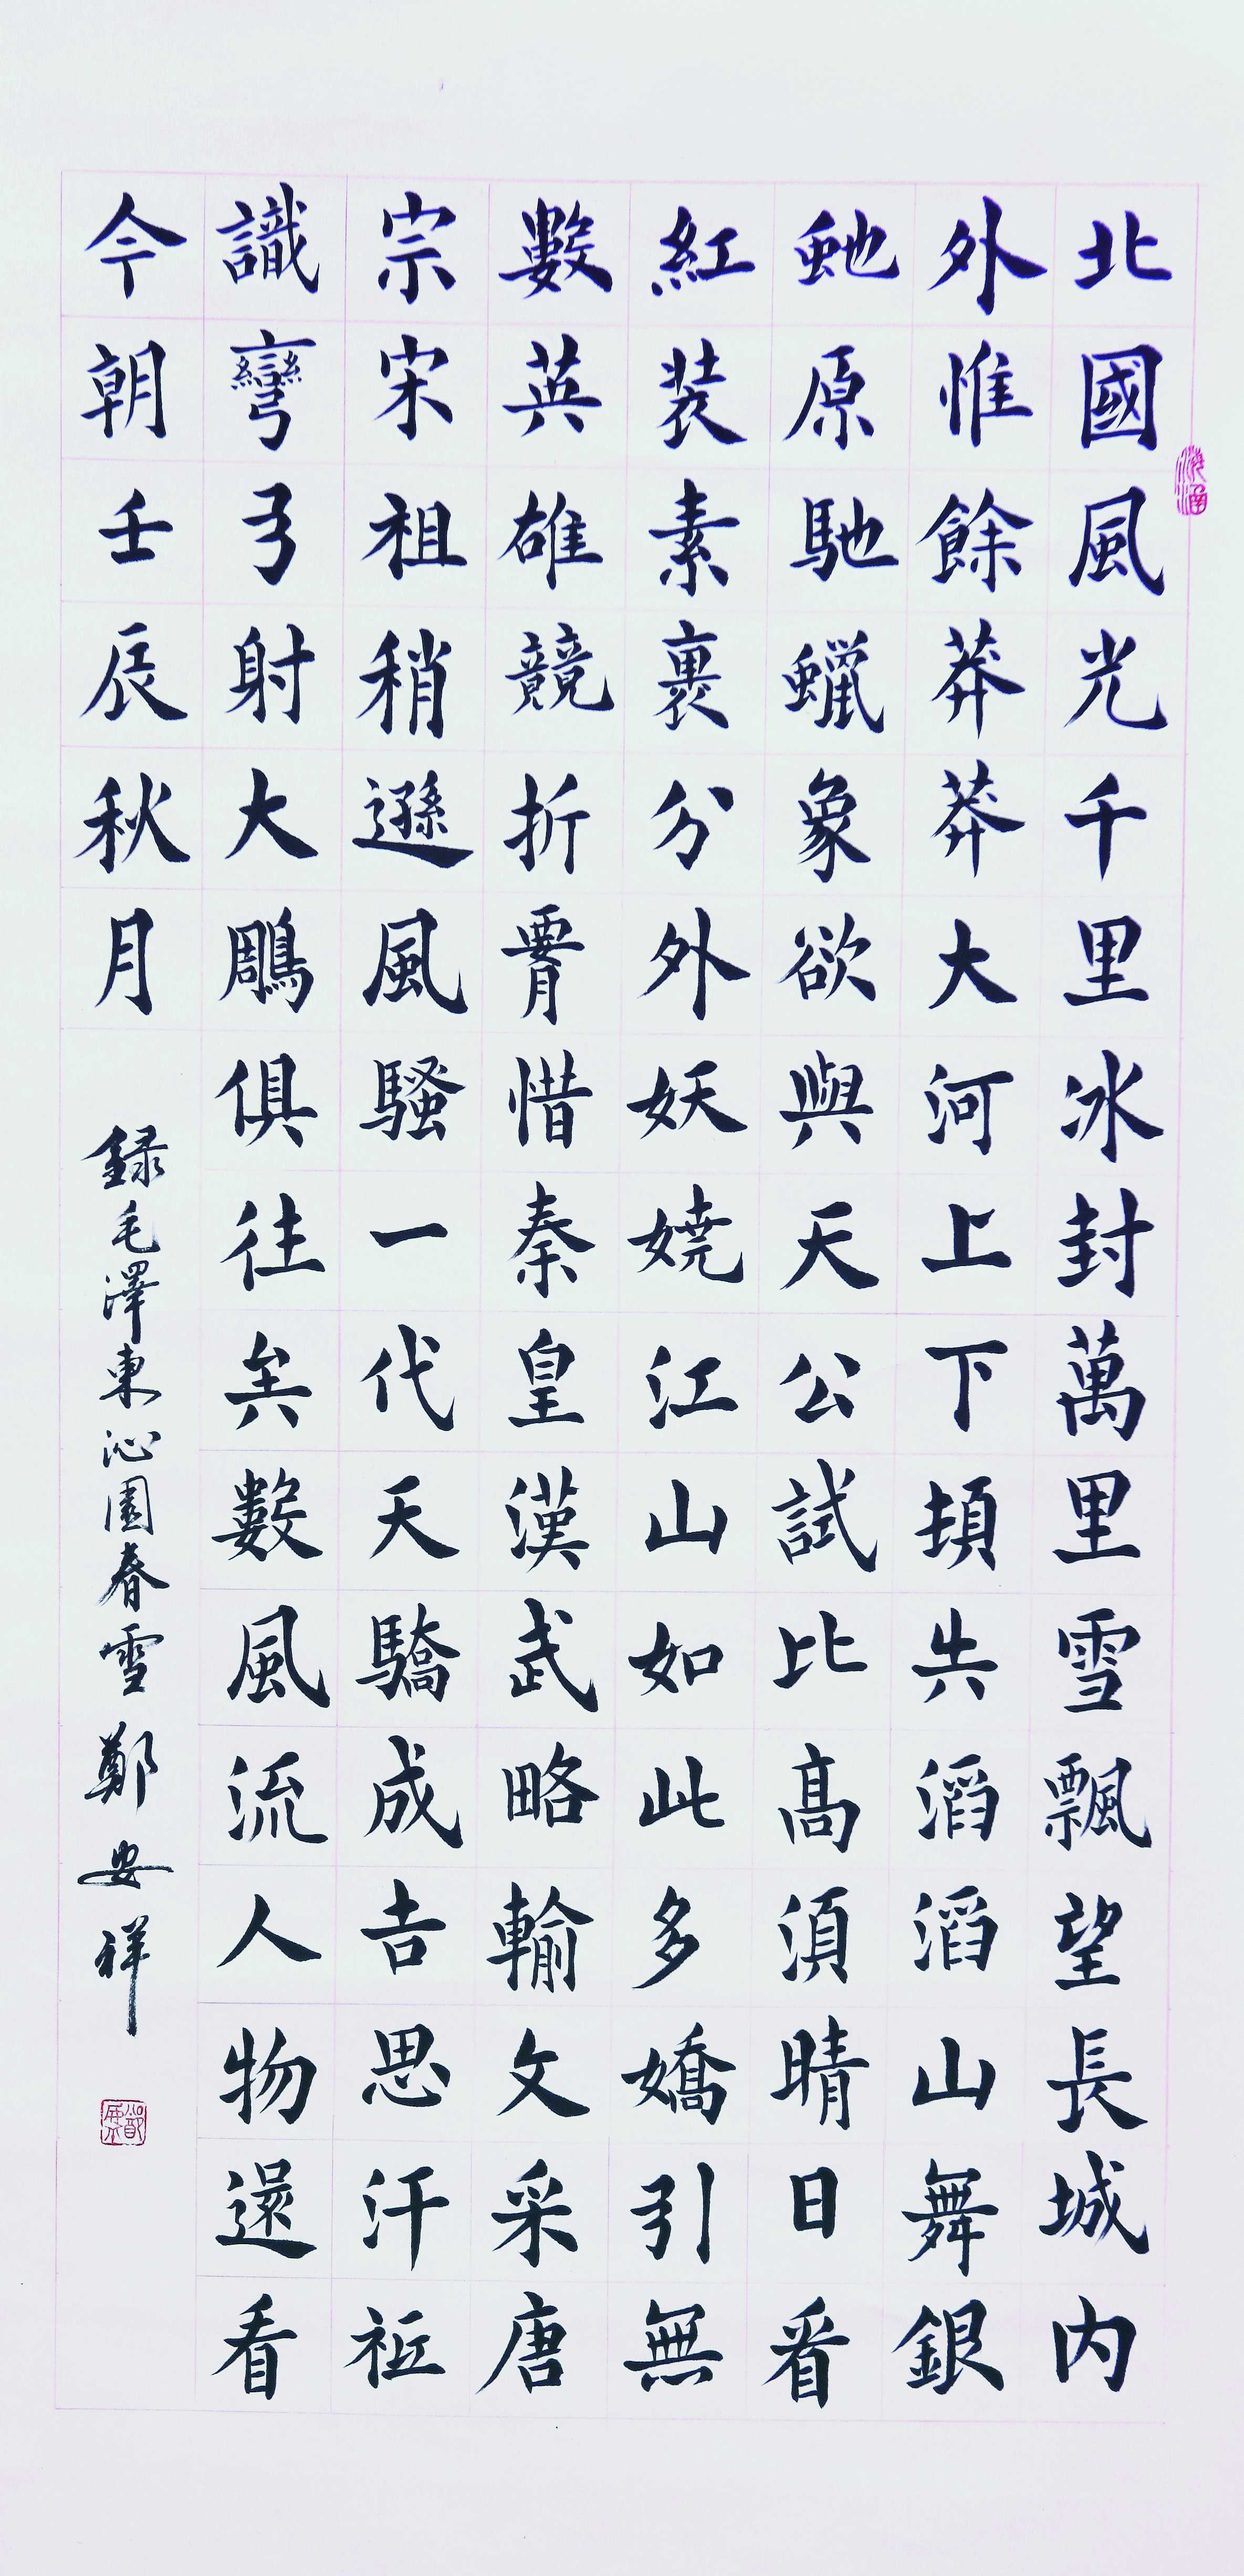 北國風光千里冰封萬里雪飄望長城内
外惟餘莽莽大河上下頓失滔滔山舞銀
虵原馳蠟象欲與天公試比髙湏晴日看
紅装素裹分外妖嬈江山如此多嬌引無
數英雄競折腰惜秦皇漢武略輸文采唐
宗宋祖稍遜風騷一代天驕成吉思汗祗
識彎弓射大鵰俱往矣數風流人物還看
今朝壬辰秋月
録毛澤東沁園春雪鄭安祥